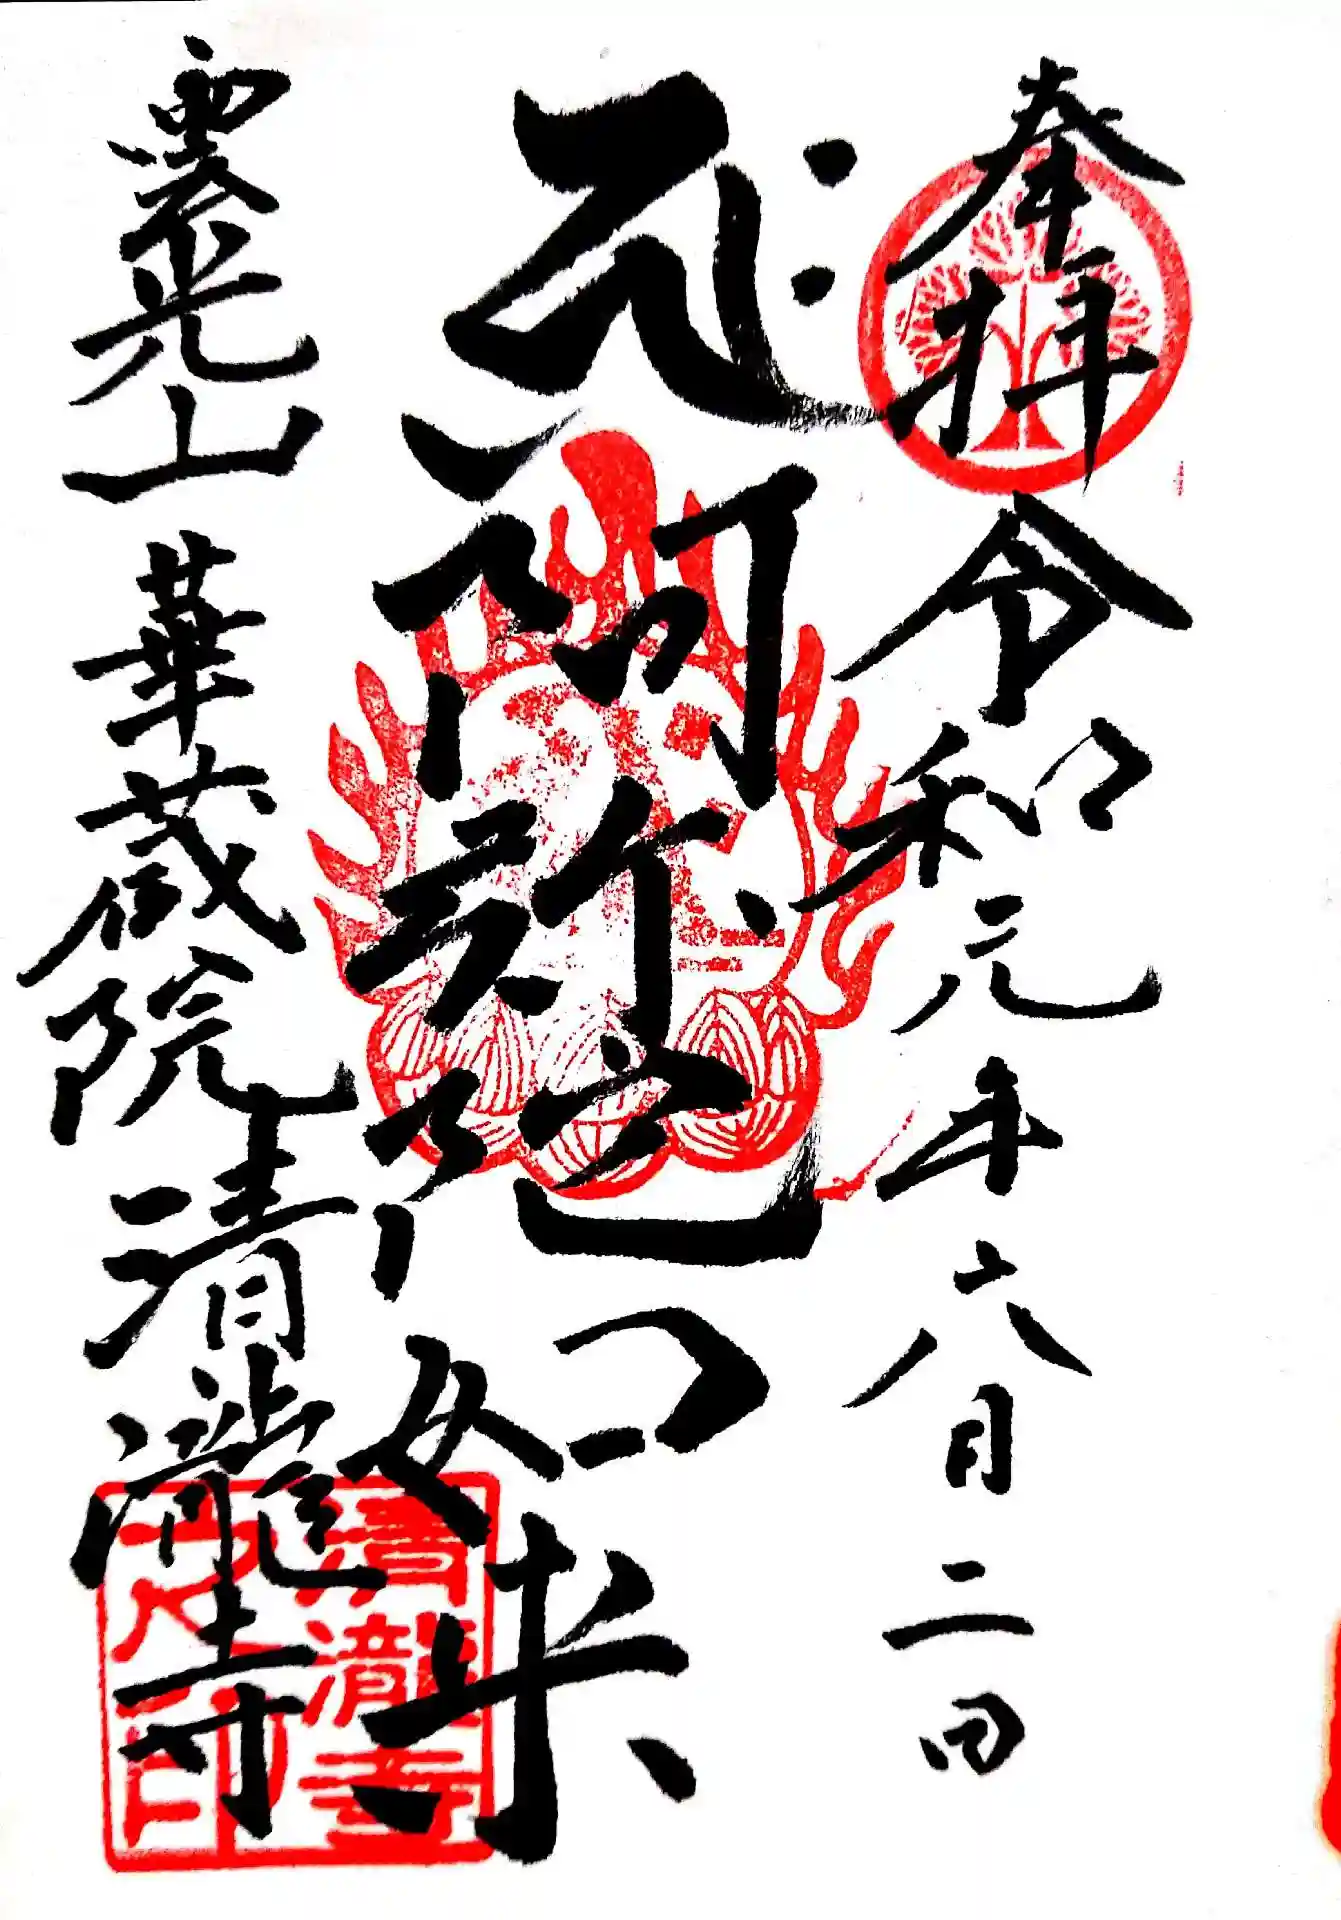 奉拝 令和元年六月二日
阿弥陀如来
霊光山 華蔵院 清瀧寺
清瀧寺之印